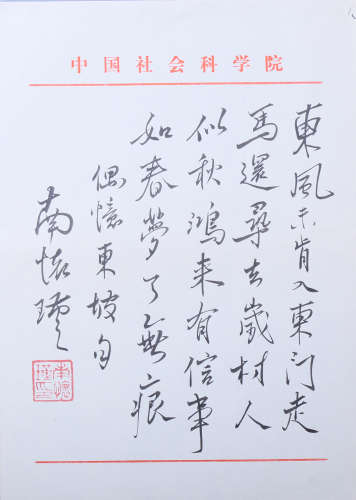 中国社会科学院
東風未肯入東门走
馬還尋去歲村人
似秋鴻来有信事
如春夢了無痕
偶憶東坡句
南怀瑾